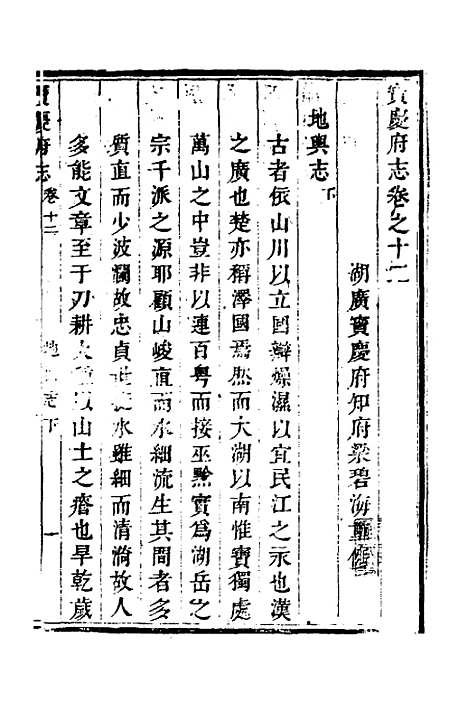 寳慶府志卷之十二
湖廣寳慶府知府梁碧海重修
地輿志下
古者依山川以立國辯燥濕以宜民江之永也漢
之廣也楚亦稱澤國焉然而大湖以南惟寳獨處
萬山之中豈非以連百粤而接巫黔實爲湖岳之
宗千派之源耶顧山峻直而水細流生其間者多
質直而少波瀾故忠貞世水雖細而清漪故人
多能文章至于刀耕火山土之瘠也旱乾歲
寳慶府志
卷十二
地志下
一